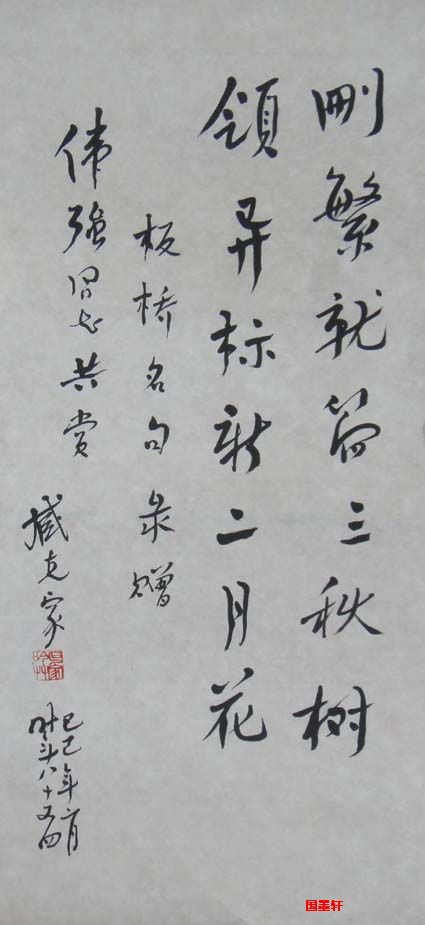 删繁就简三秋树
领异标新二月花
板桥名句录赠
伟强同志共赏
臧克家
己巳年二月
时年八十又四
国墨轩